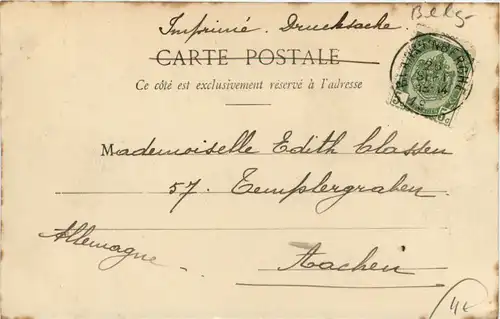 Belg.
Imprimé. Drucksache.
CARTE POSTALE
Ce côté est exclusivement réservé à l'adresse
Mademoiselle Edith Classen
57. Templergraben
Allemagne
Aachen